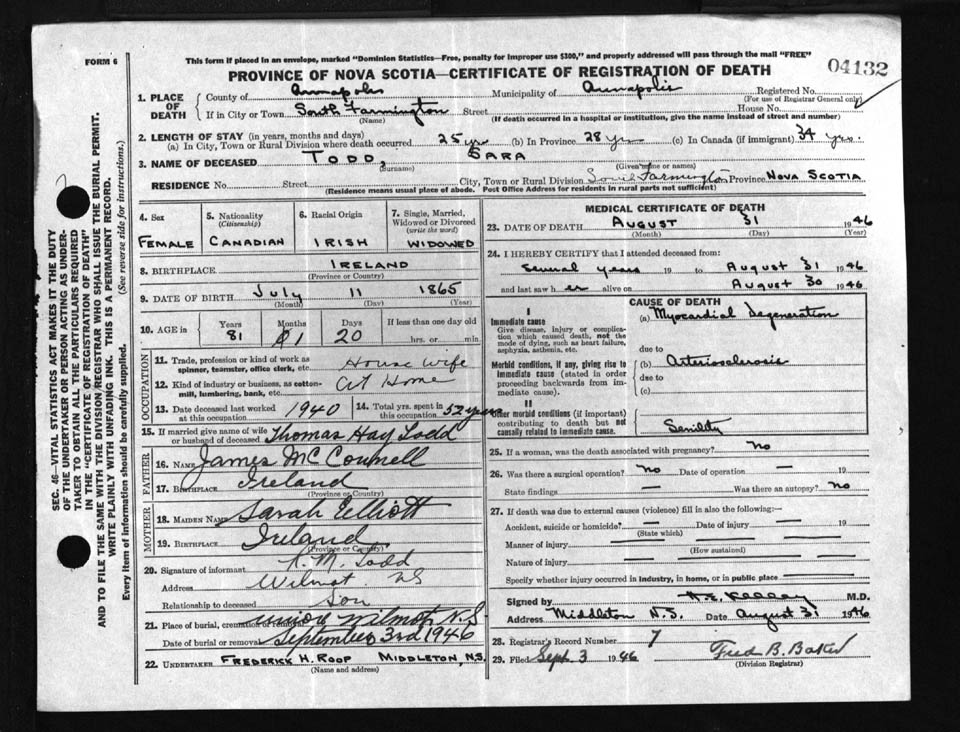 FORM 6
This form if placed in an envelope, marked "Dominion Statistics—Free, penalty for improper use $300," and properly addressed will pass through the mail "FREE"
PROVINCE OF NOVA SCOTIA—CERTIFICATE OF REGISTRATION OF DEATH
04132
1. PLACE OF DEATH
County of Annapolis Municipality of Annapolis Registered No.
(For use of Registrar General only)
If in City or Town South Farmington Street House No.
(Name) (If death occurred in a hospital or institution, give the name instead of street and number)
2. LENGTH OF STAY (in years, months and days)
(a) In City, Town or Rural Division where death occurred 25 yrs (b) In Province 28 yrs (c) In Canada (if immigrant) 34 yrs.
3. NAME OF DECEASED TODD, SARA
(Surname) (Given name or names)
RESIDENCE No. Street City, Town or Rural Division South Farmington Province NOVA SCOTIA
(Residence means usual place of abode. Post Office Address for residents in rural parts not sufficient)
4. Sex
FEMALE
5. Nationality
(Citizenship)
CANADIAN
6. Racial Origin
IRISH
7. Single, Married, Widowed or Divorced
(write the word)
WIDOWED
8. BIRTHPLACE IRELAND
(Province or Country)
9. DATE OF BIRTH July 11 1865
(Month) (Day) (Year)
10. AGE in
Years Months Days If less than one day old
81 1 20 hrs. or min.
OCCUPATION
11. Trade, profession or kind of work as spinner, teamster, office clerk, etc. House wife
12. Kind of industry or business, as cotton-mill, lumbering, bank, etc. At Home
13. Date deceased last worked at this occupation 1940
14. Total yrs. spent in this occupation 52 years
15. If married give name of wife or husband of deceased Thomas Hay Todd
FATHER
16. NAME James McConnell
17. Birthplace Ireland
(Province or Country)
MOTHER
18. MAIDEN NAME Sarah Elliott
19. BIRTHPLACE Ireland
(Province or Country)
20. Signature of informant M. Todd
Address Wilmot NS
Relationship to deceased Son
21. Place of burial, cremation or removal Wilmot, N.S
Date of burial or removal September 3rd 1946
22. UNDERTAKER FREDERICK H. ROOP MIDDLETON, N.S.
(Name and address)
MEDICAL CERTIFICATE OF DEATH
23. DATE OF DEATH AUGUST 31 1946
(Month) (Day) (Year)
24. I HEREBY CERTIFY that I attended deceased from:
several years 19 to August 31 1946
and last saw her alive on August 30 1946
CAUSE OF DEATH
I
Immediate cause
Give disease, injury or complication which caused death, not the mode of dying, such as heart failure, asphyxia, asthenia, etc.
(a) Myocardial Degeneration
due to
Morbid conditions, if any, giving rise to immediate cause (stated in order proceeding backwards from immediate cause).
(b) Arteriosclerosis
due to
(c)
II
Other morbid conditions (if important) contributing to death but not causally related to immediate cause.
Senility
25. If a woman, was the death associated with pregnancy? no
26. Was there a surgical operation? no Date of operation — 19
State findings — Was there an autopsy? no
27. If death was due to external causes (violence) fill in also the following:—
Accident, suicide or homicide? — Date of injury — 19
(State which)
Manner of injury —
(How sustained)
Nature of injury —
Specify whether injury occurred in industry, in home, or in public place —
Signed by M.D.
Address Middleton N.S. Date August 31 1946
28. Registrar's Record Number 7
29. Filed Sept. 3 1946 Fred B. Baker
(Division Registrar)
SEC. 46—VITAL STATISTICS ACT MAKES IT THE DUTY
OF THE UNDERTAKER OR PERSON ACTING AS UNDER-
TAKER TO OBTAIN ALL THE PARTICULARS REQUIRED
IN THE "CERTIFICATE OF REGISTRATION OF DEATH"
AND TO FILE THE SAME WITH THE DIVISION REGISTRAR WHO SHALL ISSUE THE BURIAL PERMIT.
WRITE PLAINLY WITH UNFADING INK. THIS IS A PERMANENT RECORD.
Every item of information should be carefully supplied. (See reverse side for instructions.)